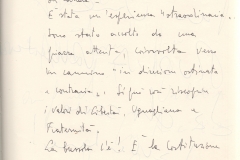 E' stata un'esperienza "straordinaria".
Sono stato accolto da una
piazza attenta, coinvolta verso
un cammino "in direzione ostinata
e contraria". Si qui va
i valori di Libertà, Uguaglianza e
Fraternità.
La bussola c'è! È la Costituzione